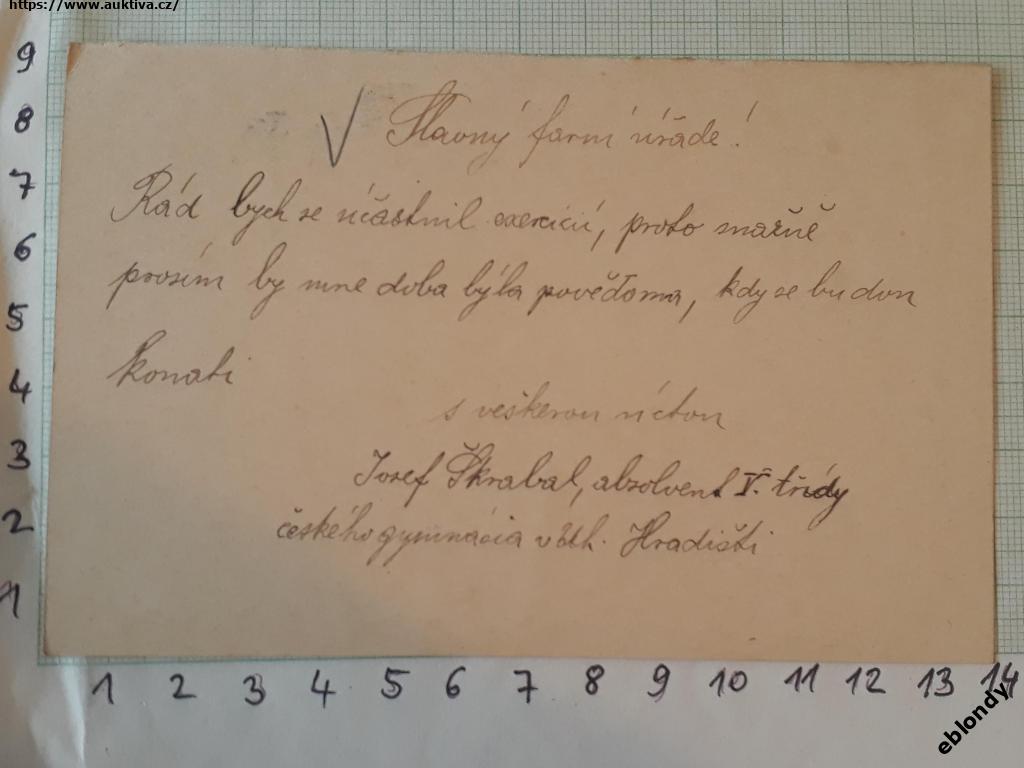 https://www.auktiva.cz/
Slavný farní úřade!
Rád bych se účastnil exercicií, proto snažně
prosím by mne doba býla povědoma, kdy se budou
konati
s veškerou úctou
Josef Škrabal, absolvent V. třídy
českého gymnácia v Uh. Hradišti
9
8
7
6
5
4
3
2
1
1 2 3 4 5 6 7 8 9 10 11 12 13 14
eblondy